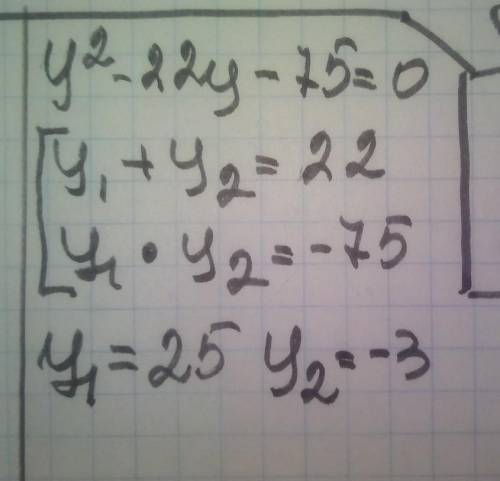 y² - 22y - 75 = 0
y₁ + y₂ = 22
y₁ · y₂ = -75
y₁ = 25 y₂ = -3